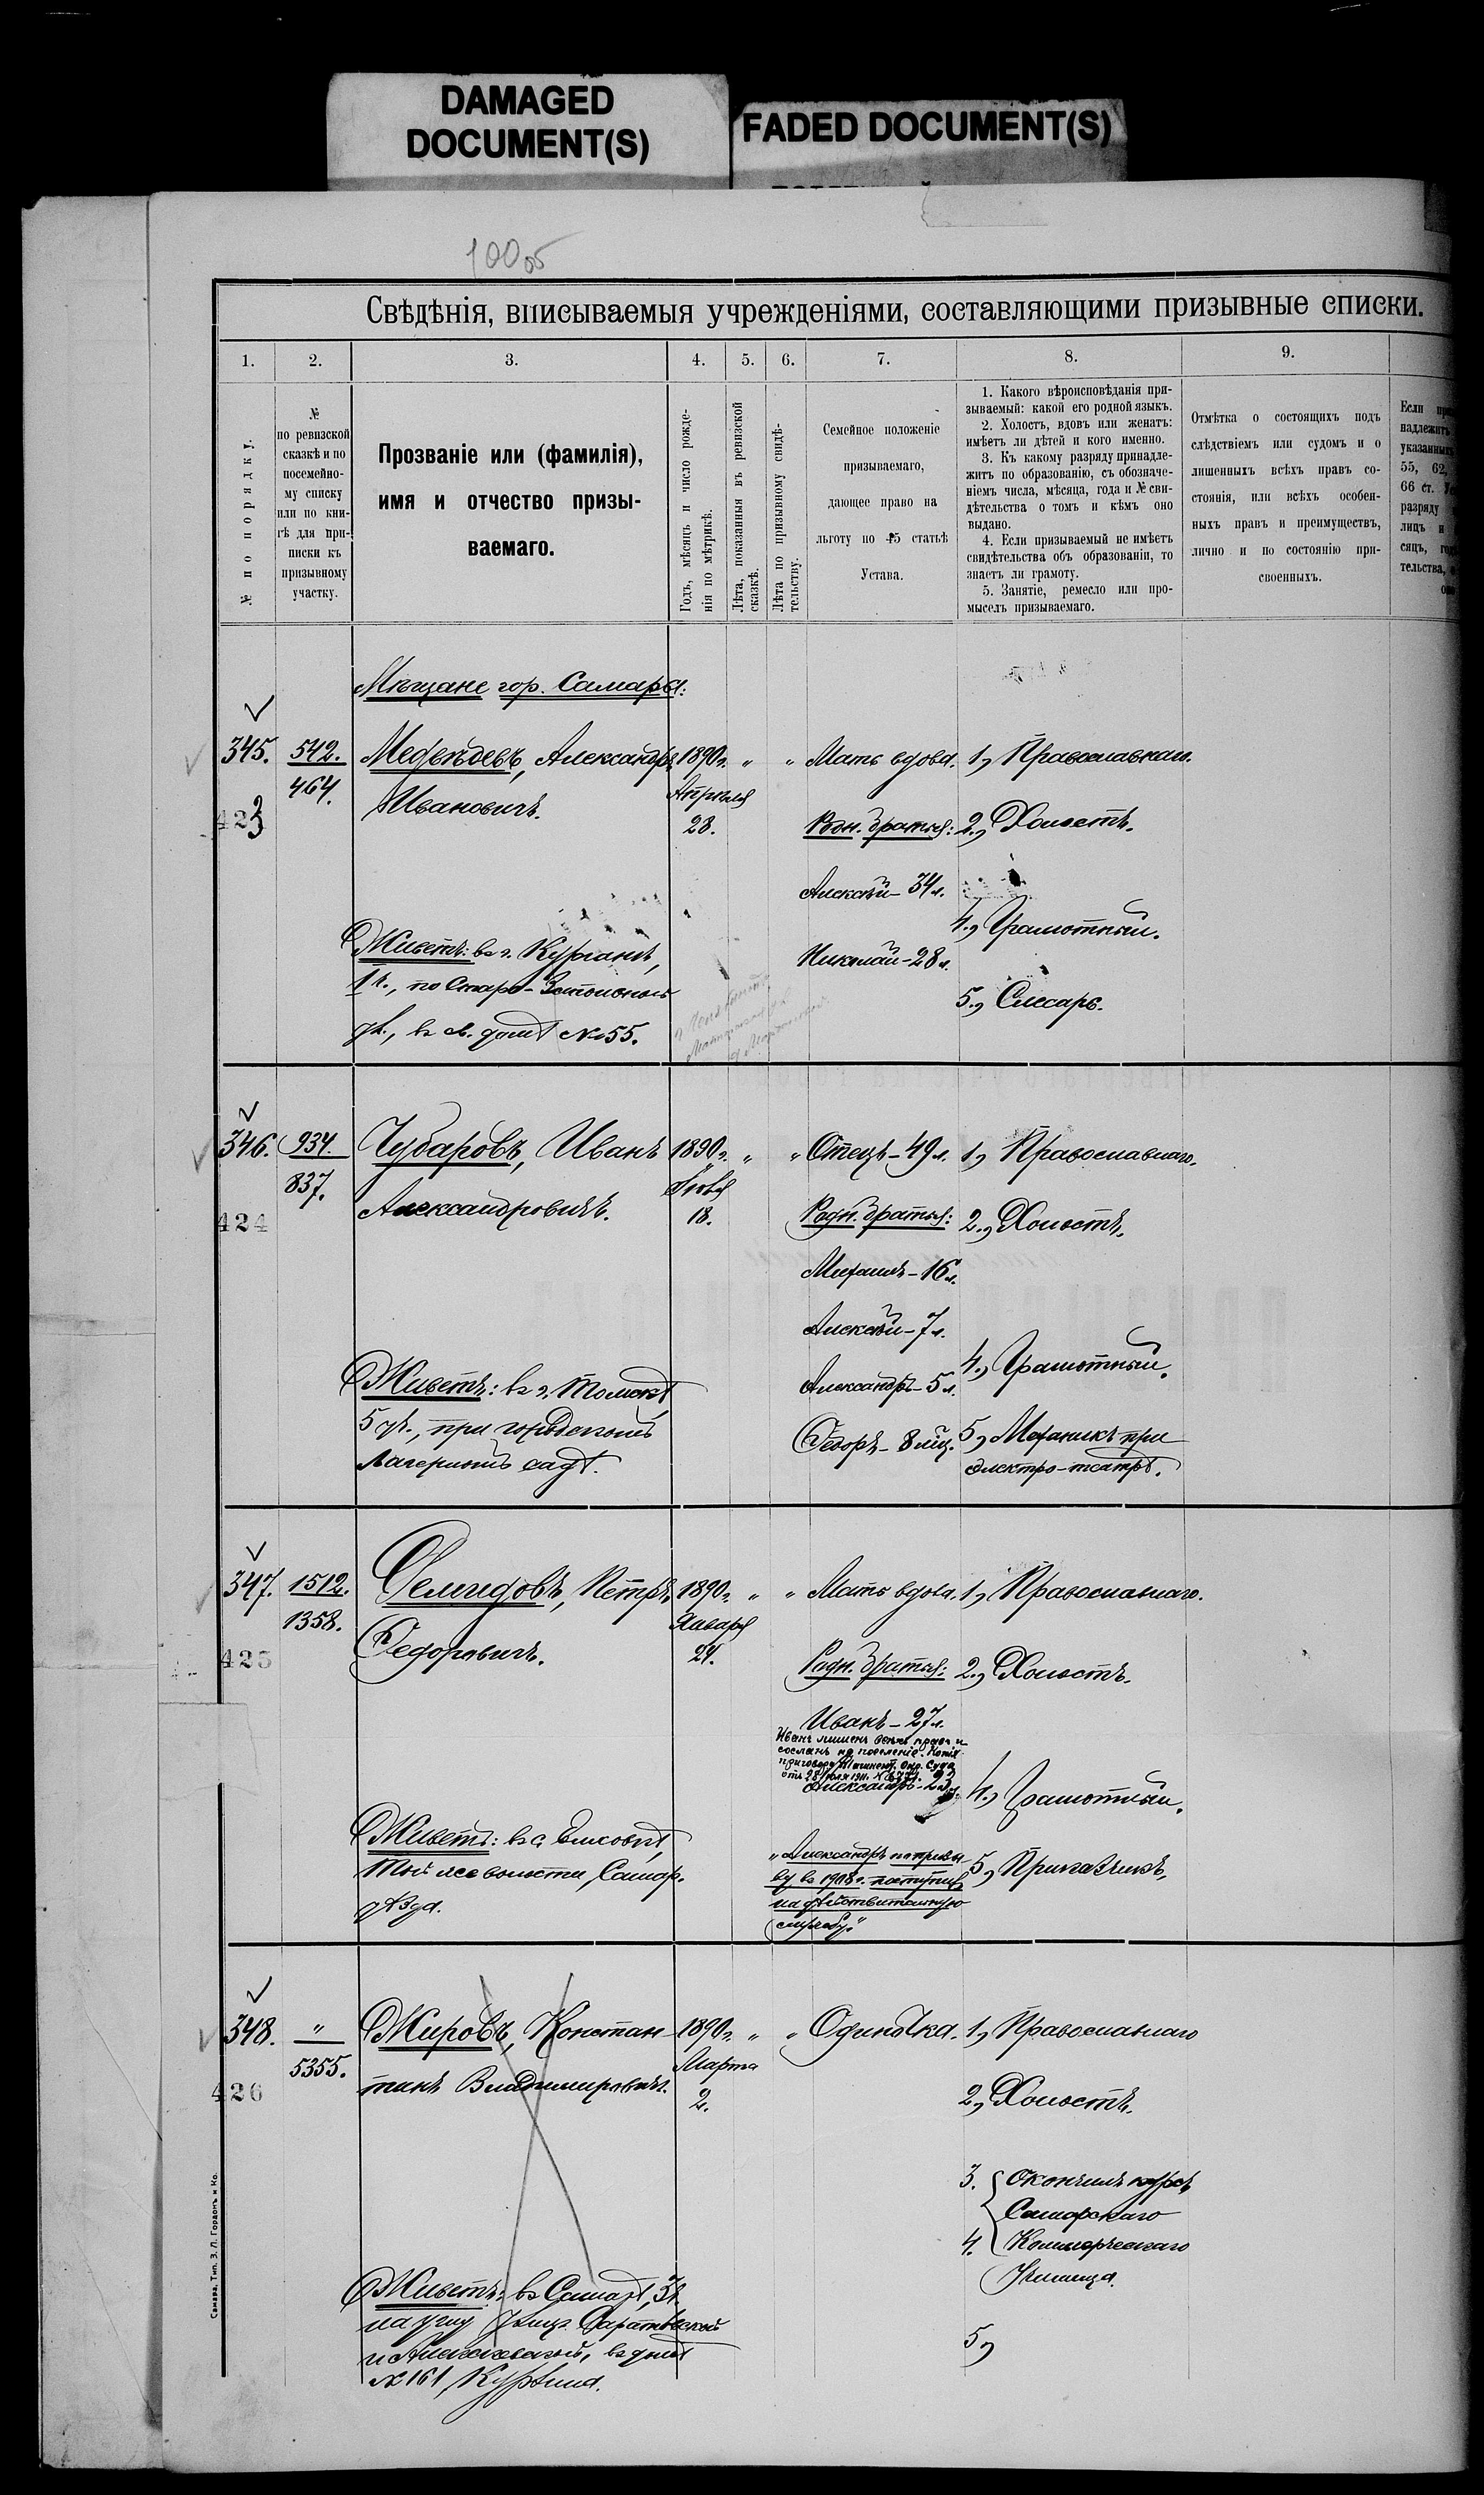 DAMAGED
DOCUMENT(S)
FADED DOCUMENT(S)
100об
Свѣдѣнія, вписываемыя учрежденіями, составляющими призывные списки.
1. 2. 3. 4. 5. 6. 7. 8. 9.
№ по порядку.
№
по ревизской
сказкѣ и по
посемейно-
му списку
или по кни-
гѣ для при-
писки къ
призывному
участку.
Прозваніе или (фамилія),
имя и отчество призы-
ваемаго.
Годъ, мѣсяцъ и число рожде-
нія по мѣтрикѣ.
Лѣта, показанныя въ ревизской
сказкѣ.
Лѣта по призывному свидѣ-
тельству.
Семейное положеніе
призываемаго,
дающее право на
льготу по 45 статьѣ
Устава.
1. Какого вѣроисповѣданія при-
зываемый: какой его родной языкъ.
2. Холостъ, вдовъ или женатъ:
имѣетъ ли дѣтей и кого именно.
3. Къ какому разряду принадле-
житъ по образованію, съ обозначе-
ніемъ числа, мѣсяца, года и № сви-
дѣтельства о томъ и кѣмъ оно
выдано.
4. Если призываемый не имѣетъ
свидѣтельства объ образованіи, то
знаетъ ли грамоту.
5. Занятіе, ремесло или про-
мыселъ призываемаго.
Отмѣтка о состоящихъ подъ
слѣдствіемъ или судомъ и о
лишенныхъ всѣхъ правъ со-
стоянія, или всѣхъ особен-
ныхъ правъ и преимуществъ,
лично и по состоянію при-
своенныхъ.
Если
надлежитъ
указанныхъ
55, 62,
66 ст.
разряду
лицъ и
сяцъ,
тельства,
Мѣщане гор. Самары:
345. 542. Медвѣдевъ, Александръ 1890г. " " Мать вдова. 1, Православнаго.
464. Ивановичъ. Апрѣля
423 28. Родн. братья: 2, Холостъ.
Алексѣй – 34 л.
4, Грамотный.
Живетъ: въ г. Курганѣ, Николай – 28 л.
1 ч., по Старо-
5, Слесарь.
въ с. домѣ № 55.
346. 934. Чубаровъ, Иванъ 1890г. " " Отецъ – 49 л. 1, Православнаго.
837. Александровичъ.
424 18. Родн. братья: 2, Холостъ.
Михаилъ – 16 л.
Алексѣй – 7 л.
4, Грамотный.
Живетъ: въ г. Томскѣ, Александръ – 5 л.
5 уч., при городскомъ Федоръ – 8 мѣс. 5, Механикъ при
Лагерномъ садѣ. электро-театрѣ.
347. 1512. Селиидовъ, Петръ 1890г. " " Мать вдова. 1, Православнаго.
1358. Федоровичъ. Января
425 24. Родн. братья: 2, Холостъ.
Иванъ – 27 л.
Иванъ лишенъ всѣхъ правъ и
сосланъ на поселеніе. Копія
приговора Окр. Суда
отъ 28 1911.
Александръ – 23 л. 4, Грамотный.
Живетъ:
Той же волости, Самар. „Александръ по призы- 5, Приказчикъ.
уѣзда. ву въ 1908 г. поступилъ
на дѣйствительную
службу."
348. " Жировъ, Констан- 1890г. " " Одиночка. 1, Православнаго
5355. тинъ Владимировичъ. Марта
426 2. 2, Холостъ.
3. Окончилъ курсъ
Самарскаго
4. Коммерческаго
Училища.
Живетъ: въ Самарѣ, 3 ч.
на углу улицъ Саратовской
и Алексѣевской, въ домѣ
№ 161, Курлина.
5,
Самара, Тип. З. Л. Гордонъ и Ко.